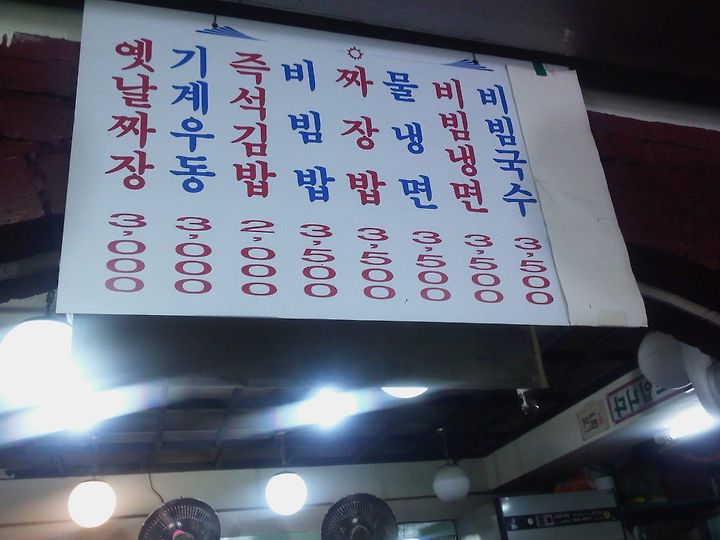 옛날짜장 3,000
기계우동 3,000
즉석김밥 2,000
비빔밥 3,500
짜장밥 3,500
물냉면 3,500
비빔냉면 3,500
비빔국수 3,500
입니다